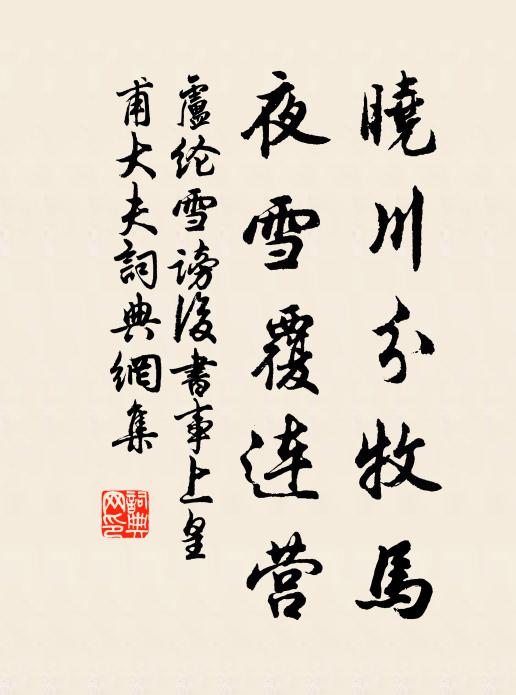 曉川分牧馬
夜雪覆连营
盧纶雪謗後書事上皇
甫大夫詞典網集
詞典網印